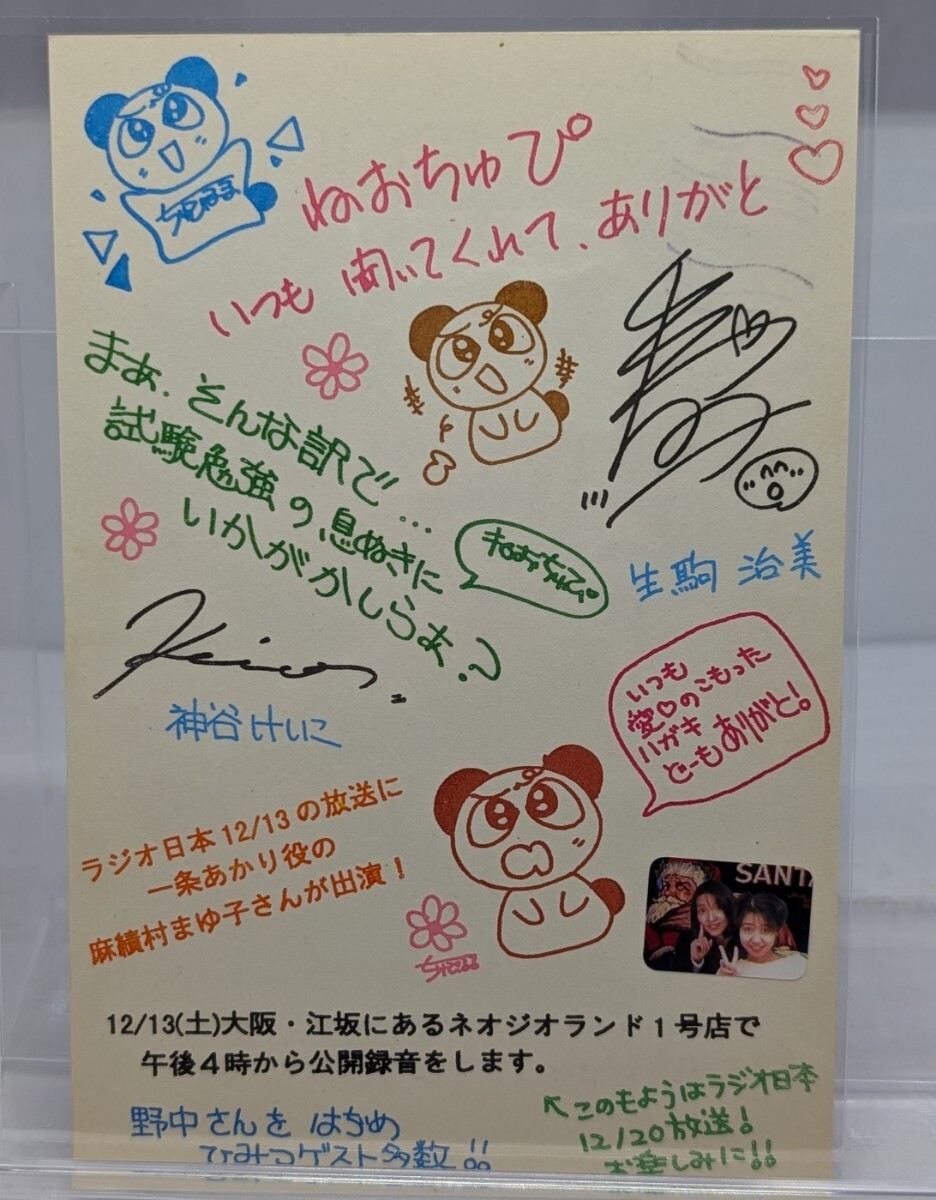 ねおちゅぴ
いつも 聞いてくれて、ありがと
まぁ、そんな訳で…
試験勉強の息ぬきに
いかがかしらぁ?
ねおちゅぴ。
生駒 治美
神谷けいこ
いつも
愛♡のこもった
ハガキ
どーもありがと!
ラジオ日本12/13の放送に
一条あかり役の
麻績村まゆ子さんが出演!
SANTA
12/13(土)大阪・江坂にあるネオジオランド1号店で
午後4時から公開録音をします。
野中さんを はぢめ
ひみつゲスト多数!!
↖このもようはラジオ日本
12/20放送!
お楽しみに!!